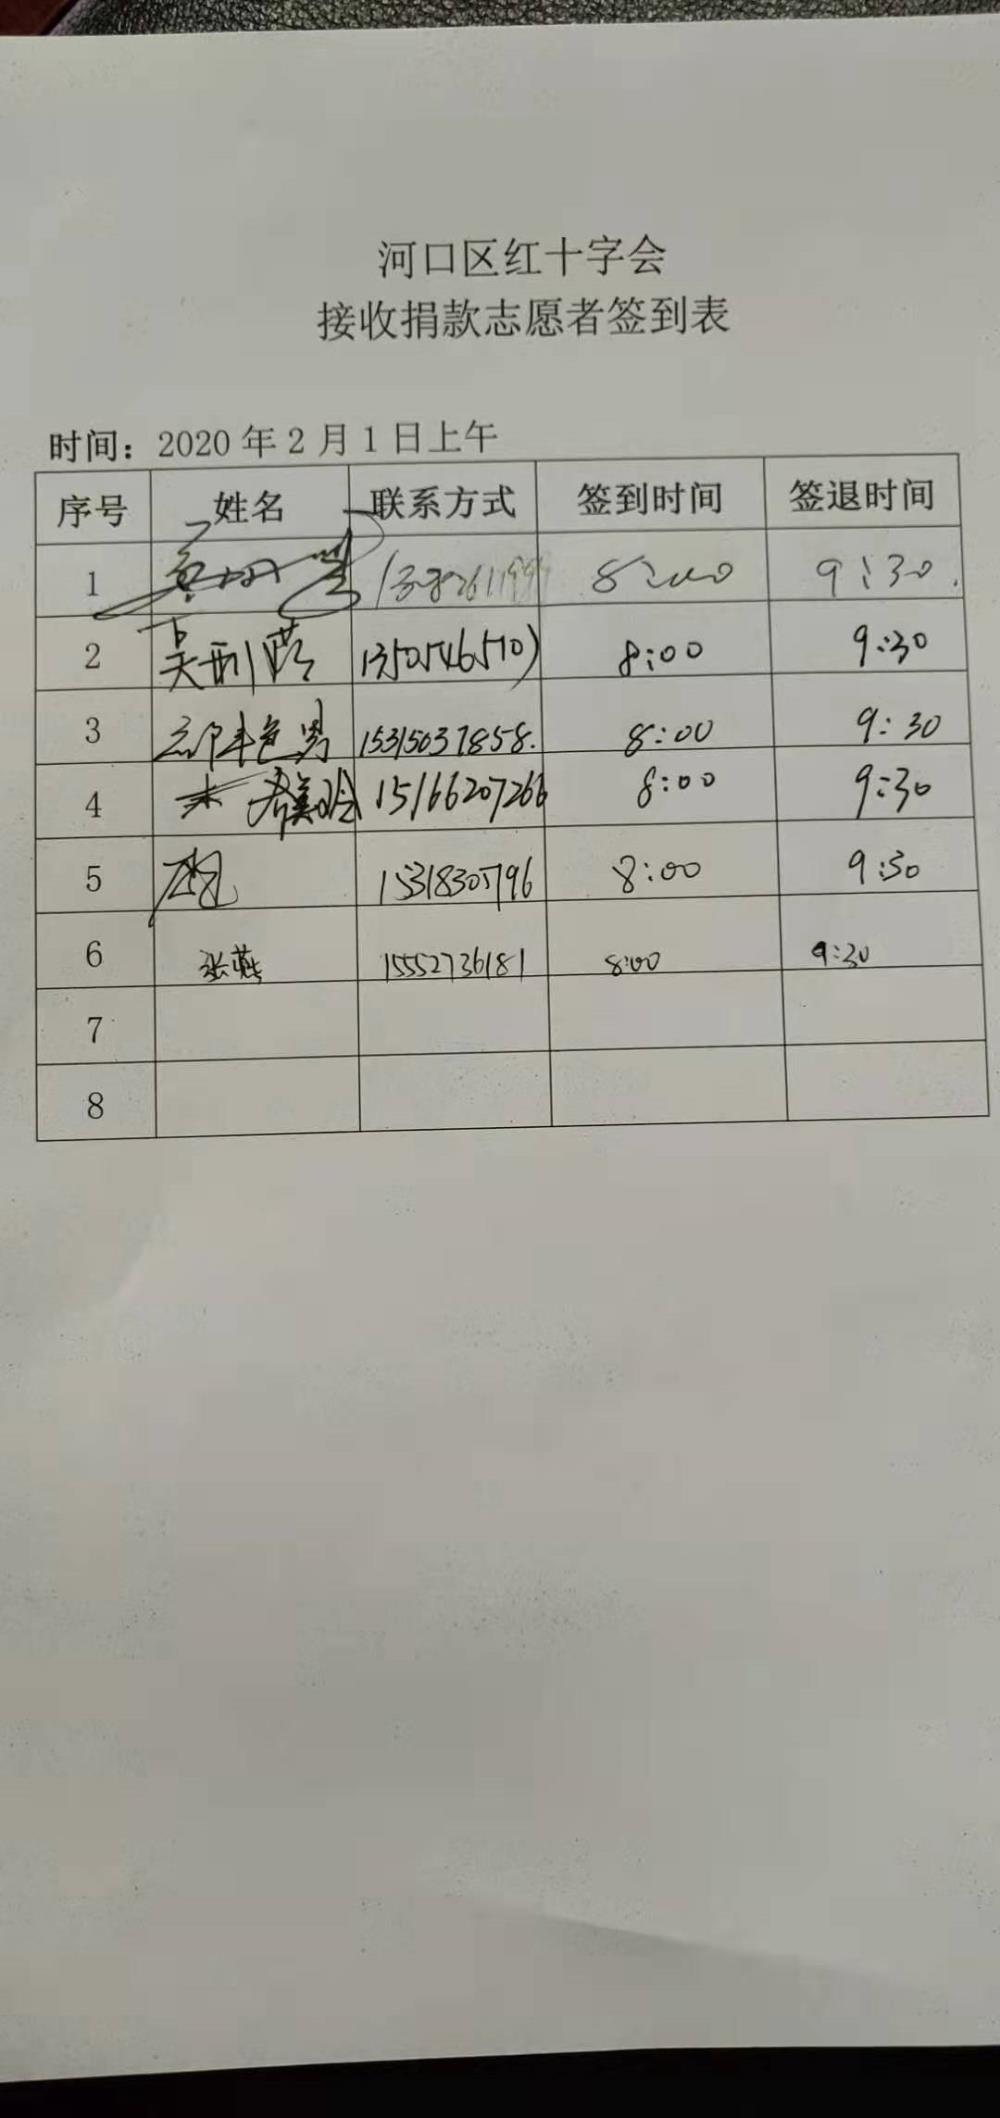 河口区红十字会
接收捐款志愿者签到表
时间：2020年2月1日上午
序号 姓名 联系方式 签到时间 签退时间
1 8:00 9:30.
2 8:00 9:30
3 15315037858. 8:00 9:30
4 15166207266 8:00 9:30
5 15318305796 8:00 9:30
6 张燕 15552736181 8:00 9:30
7
8